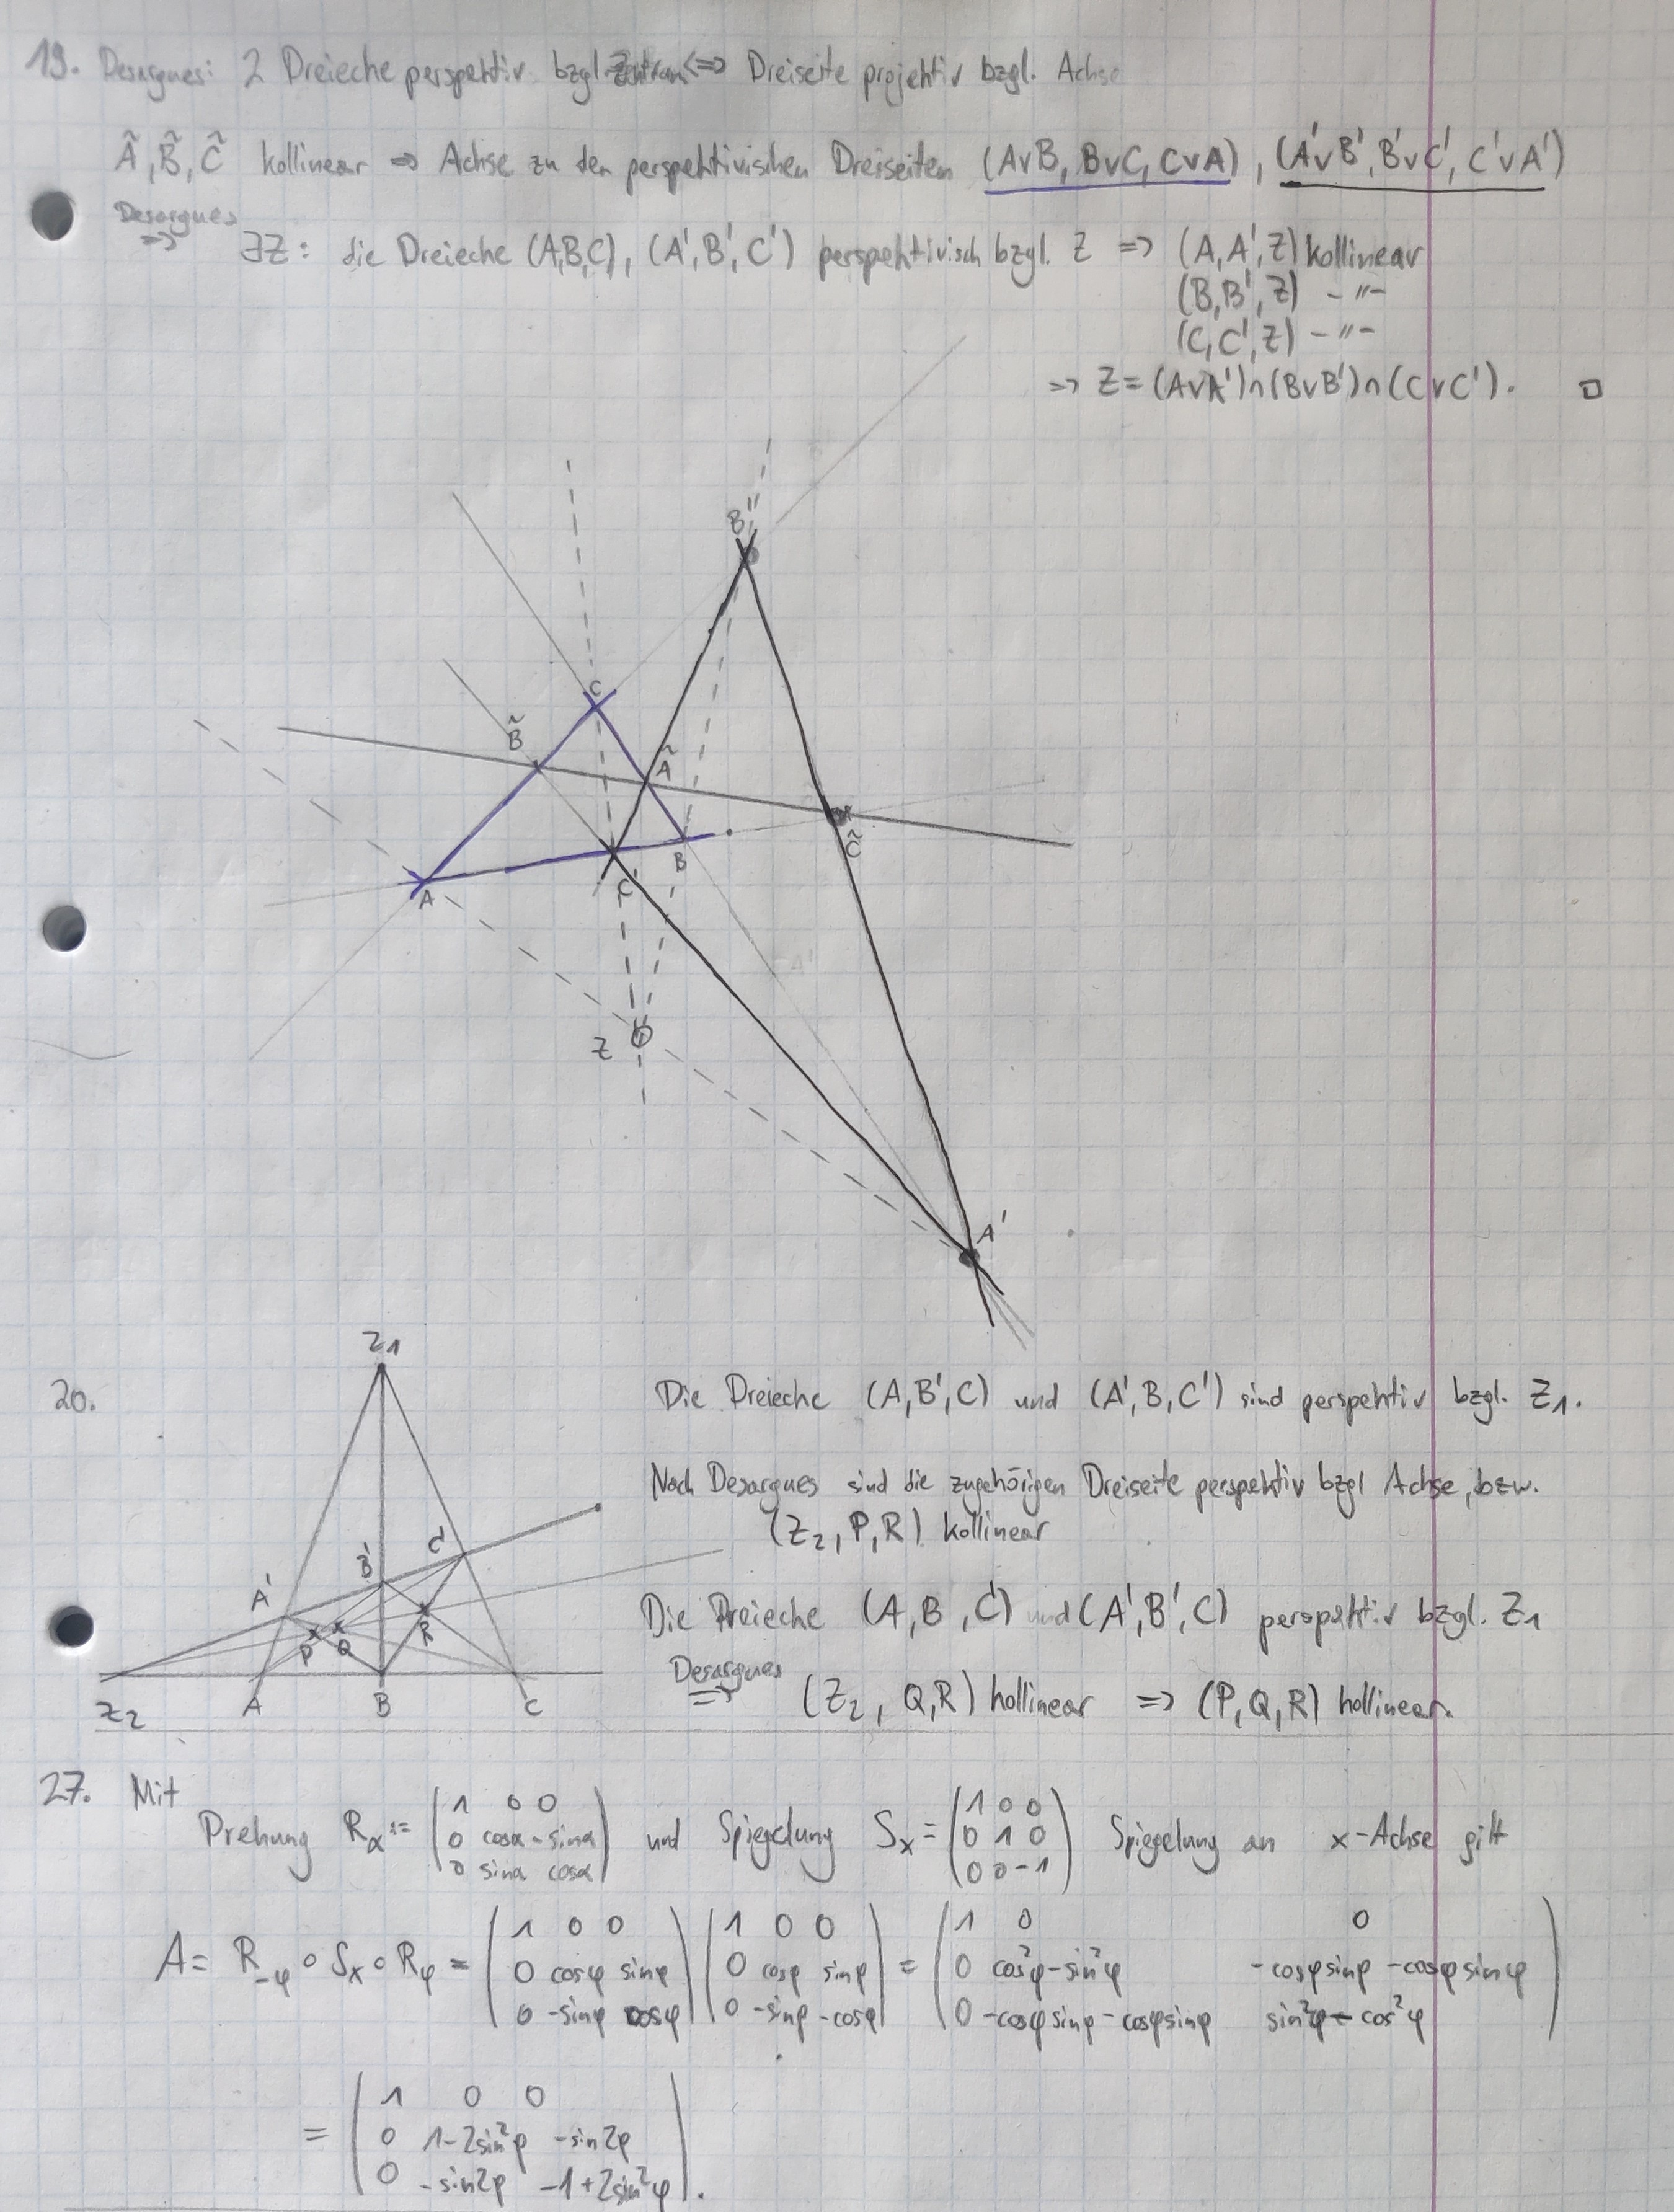 19. Desargues: 2 Dreiecke perspektiv bzgl. Zentrum <=> Dreiseite projektiv bzgl. Achse
Ã, B̃, C̃ kollinear => Achse zu den perspektivischen Dreiseiten (A∨B, B∨C, C∨A), (A'∨B', B'∨C', C'∨A')
Desargues
=> ∃Z: die Dreiecke (A,B,C), (A',B',C') perspektivisch bzgl. Z => (A,A',Z) kollinear
(B,B',Z) -"-
(C,C',Z) -"-
=> Z = (A∨A')∩(B∨B')∩(C∨C'). □
B'
C
B̃
Ã
C̃
B
A
C'
A'
Z
A'
Z1
20.
Die Dreiecke (A,B',C) und (A',B,C') sind perspektiv bzgl. Z1.
Nach Desargues sind die zugehörigen Dreiseite perspektiv bzgl Achse, bzw.
(Z2, P, R) kollinear
C'
B'
A'
P Q R
Z2 A B C
Die Dreiecke (A, B, C') und (A', B', C) perspektiv bzgl. Z1
Desargues
=> (Z2, Q, R) kollinear => (P, Q, R) kollinear.
27. Mit
Drehung Rα := (1 0 0
0 cosα -sinα
0 sinα cosα) und Spiegelung Sx = (1 0 0
0 1 0
0 0 -1) Spiegelung an x-Achse gilt
A = R-φ ∘ Sx ∘ Rφ = (1 0 0
0 cosφ sinφ
0 -sinφ cosφ) (1 0 0
0 cosφ sinφ
0 -sinφ -cosφ) = (1 0 0
0 cos²φ-sin²φ -cosφ sinφ - cosφ sinφ
0 -cosφ sinφ - cosφ sinφ sin²φ - cos²φ)
= (1 0 0
0 1-2sin²φ -sin2φ
0 -sin2φ -1+2sin²φ).